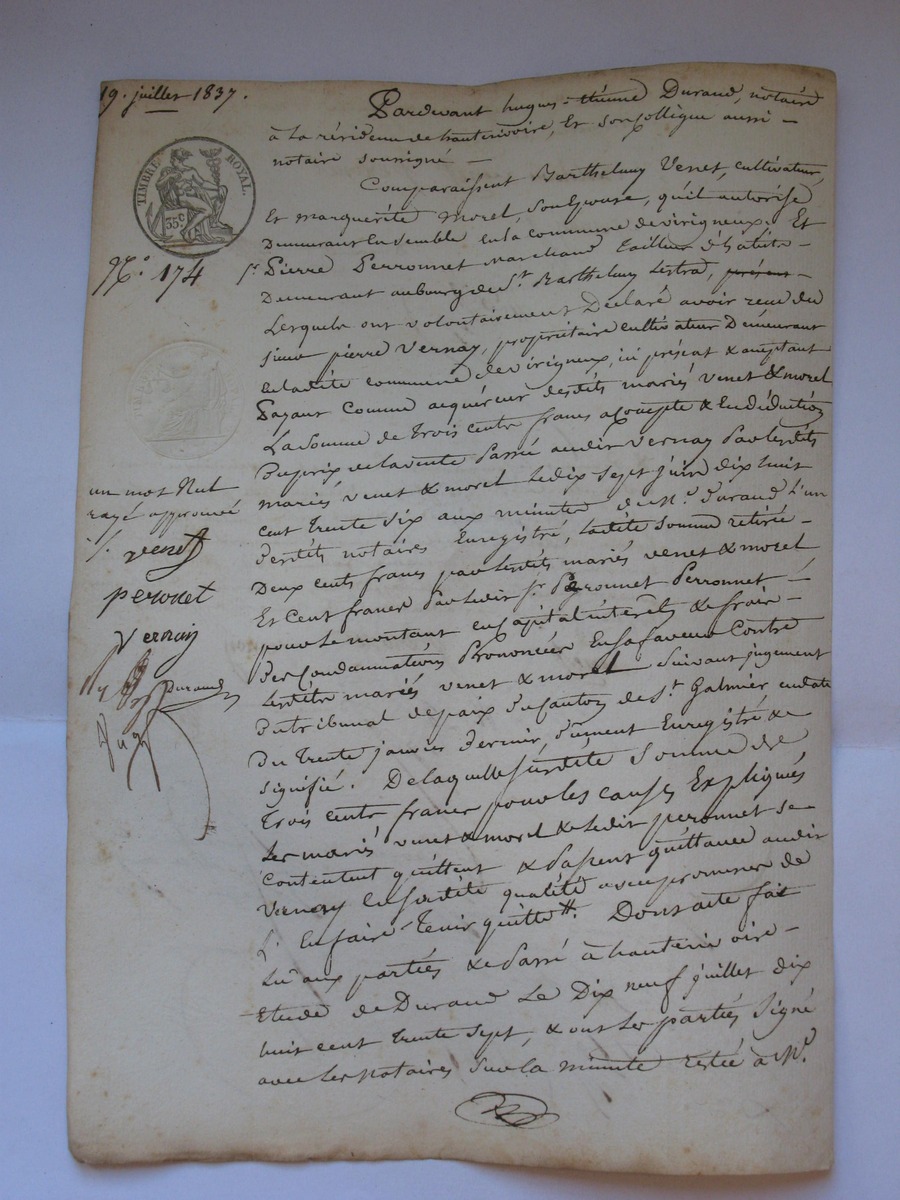 19. juillet 1837.
TIMBRE ROYAL.
35c
N.o 174
Pardevant hugues-étienne Durand, notaire
à la résidence de hauterivoire, Et son Collègue aussi –
notaire soussigné –
Comparaissent Barthelemy Venet, cultivateur,
Et marguérite morel, son Epouse, qu'il autorise
Demeurant Ensemble En la commune de virigneux. Et
sr. Pierre Perronnet marchand Tailleur d'habits –
Demeurant au bourg de St. Barthelemy Lestra, présens –
Lesquels ont volontairement Déclaré avoir reçu du
sieur pierre Vernay, propriétaire cultivateur Demeurant
En ladite commune de virigneux, ici présent & acceptant
Payant Comme acquéreur desdits mariés venet & morel
La somme de Trois Cents francs acompte & En déduction
Du prix de la vente Passée audit Vernay Par lesdits
mariés venet & morel Le dix sept juin dix huit
cent Trente Six aux minutes de Me. Durand L'un
desdits notaires Enregistré, ladite somme retirée –
Deux cents francs par lesdits mariés venet & morel
Et Cent francs Par ledit sr. Perronnet Perronnet –
pour le montant En Capital intérêts & frais –
Des Condamnations Prononcées En sa faveur Contre
lesdits mariés venet & morel Suivant jugement
du tribunal de paix du canton de St. Galmier en date
Du Trente janvier dernier, dûment Enregistré &
signifié. De laquelle susdite Somme de
Trois cents francs pour les causes Expliquées
Les mariés venet & morel & ledit peronnet se
contentent quittent & Passent quittance audit
Vernay En sadite qualité avec promesse de
L'En faire Tenir quitte. Dont acte fait
Lu aux parties & Passé à hauterivoire –
Etude de Durand Le Dix neuf juillet dix
huit cent trente Sept, & ont les parties Signé
avec les notaires Sur la minute restée à Me.
un mot Nul
rayé approuvé
venet
peronet
Vernay
Durand